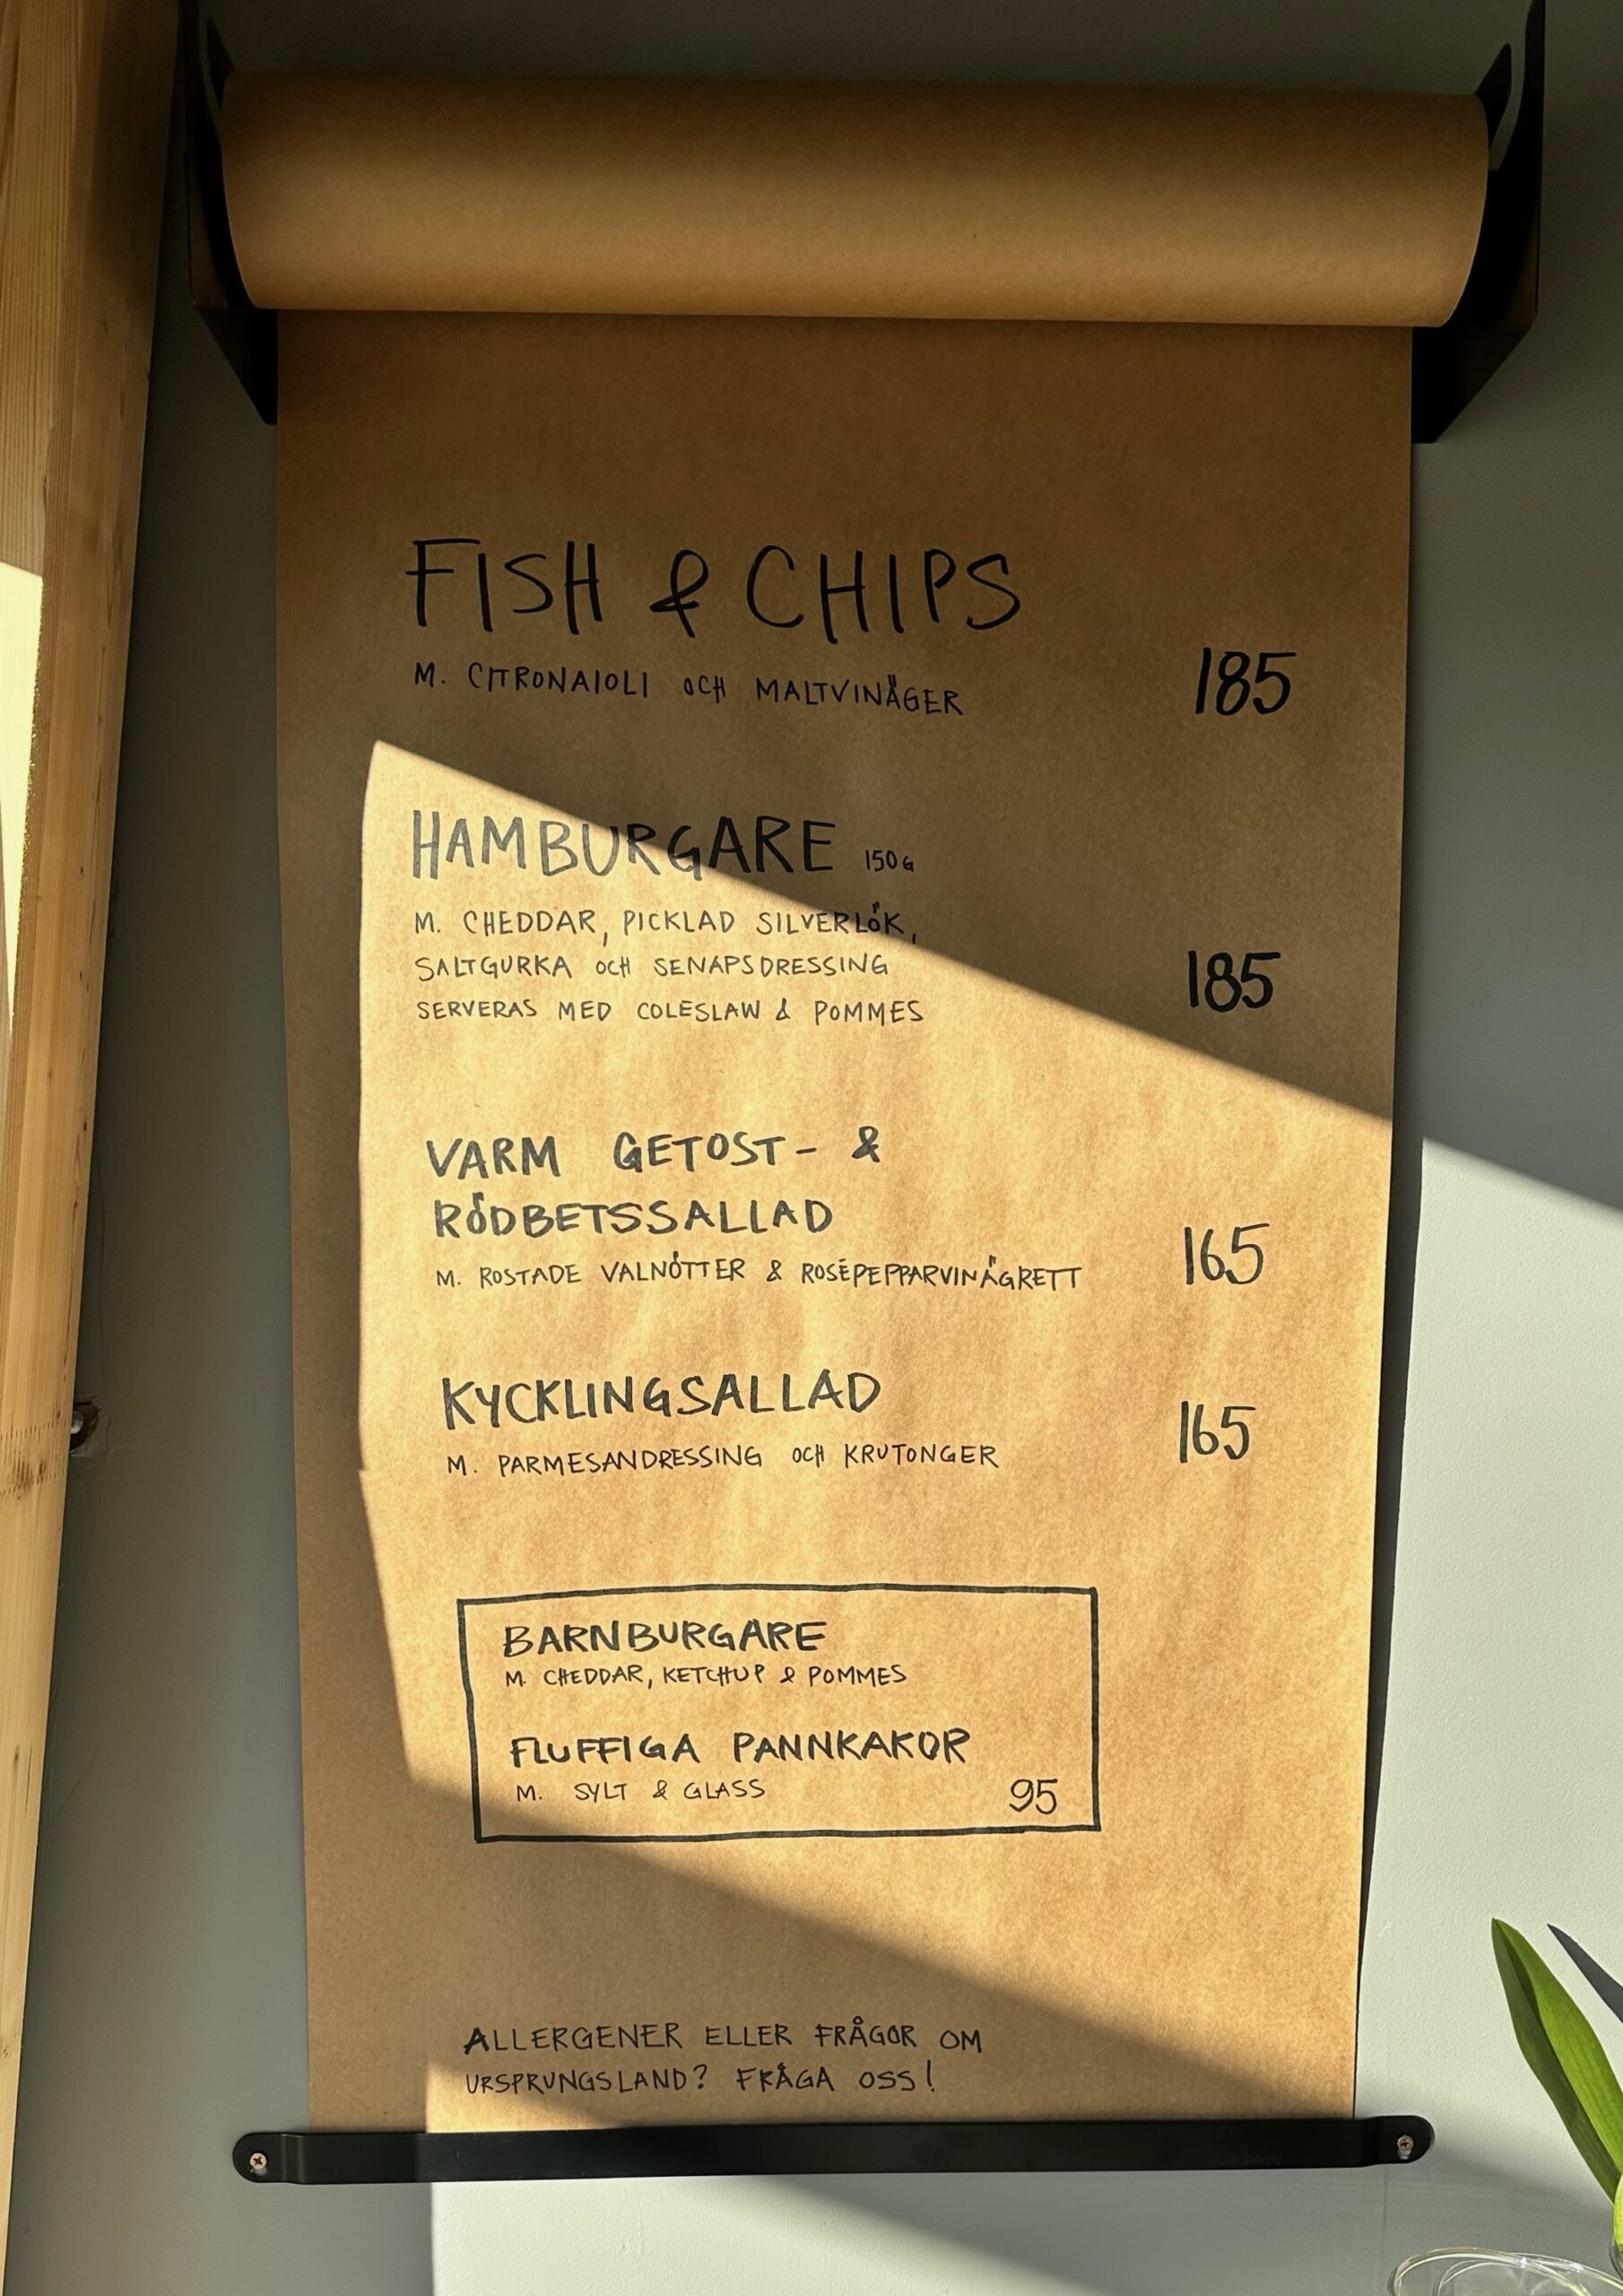 FISH & CHIPS
M. CITRONAIOLI OCH MALTVINÄGER
185
HAMBURGARE 150G
M. CHEDDAR, PICKLAD SILVERLÖK,
SALTGURKA OCH SENAPSDRESSING
SERVERAS MED COLESLAW & POMMES
185
VARM GETOST- &
RÖDBETSSALLAD
M. ROSTADE VALNÖTTER & ROSÉPEPPARVINÄGRETT
165
KYCKLINGSALLAD
M. PARMESANDRESSING OCH KRUTONGER
165
BARNBURGARE
M. CHEDDAR, KETCHUP & POMMES
FLUFFIGA PANNKAKOR
M. SYLT & GLASS
95
ALLERGENER ELLER FRÅGOR OM
URSPRUNGSLAND? FRÅGA OSS!